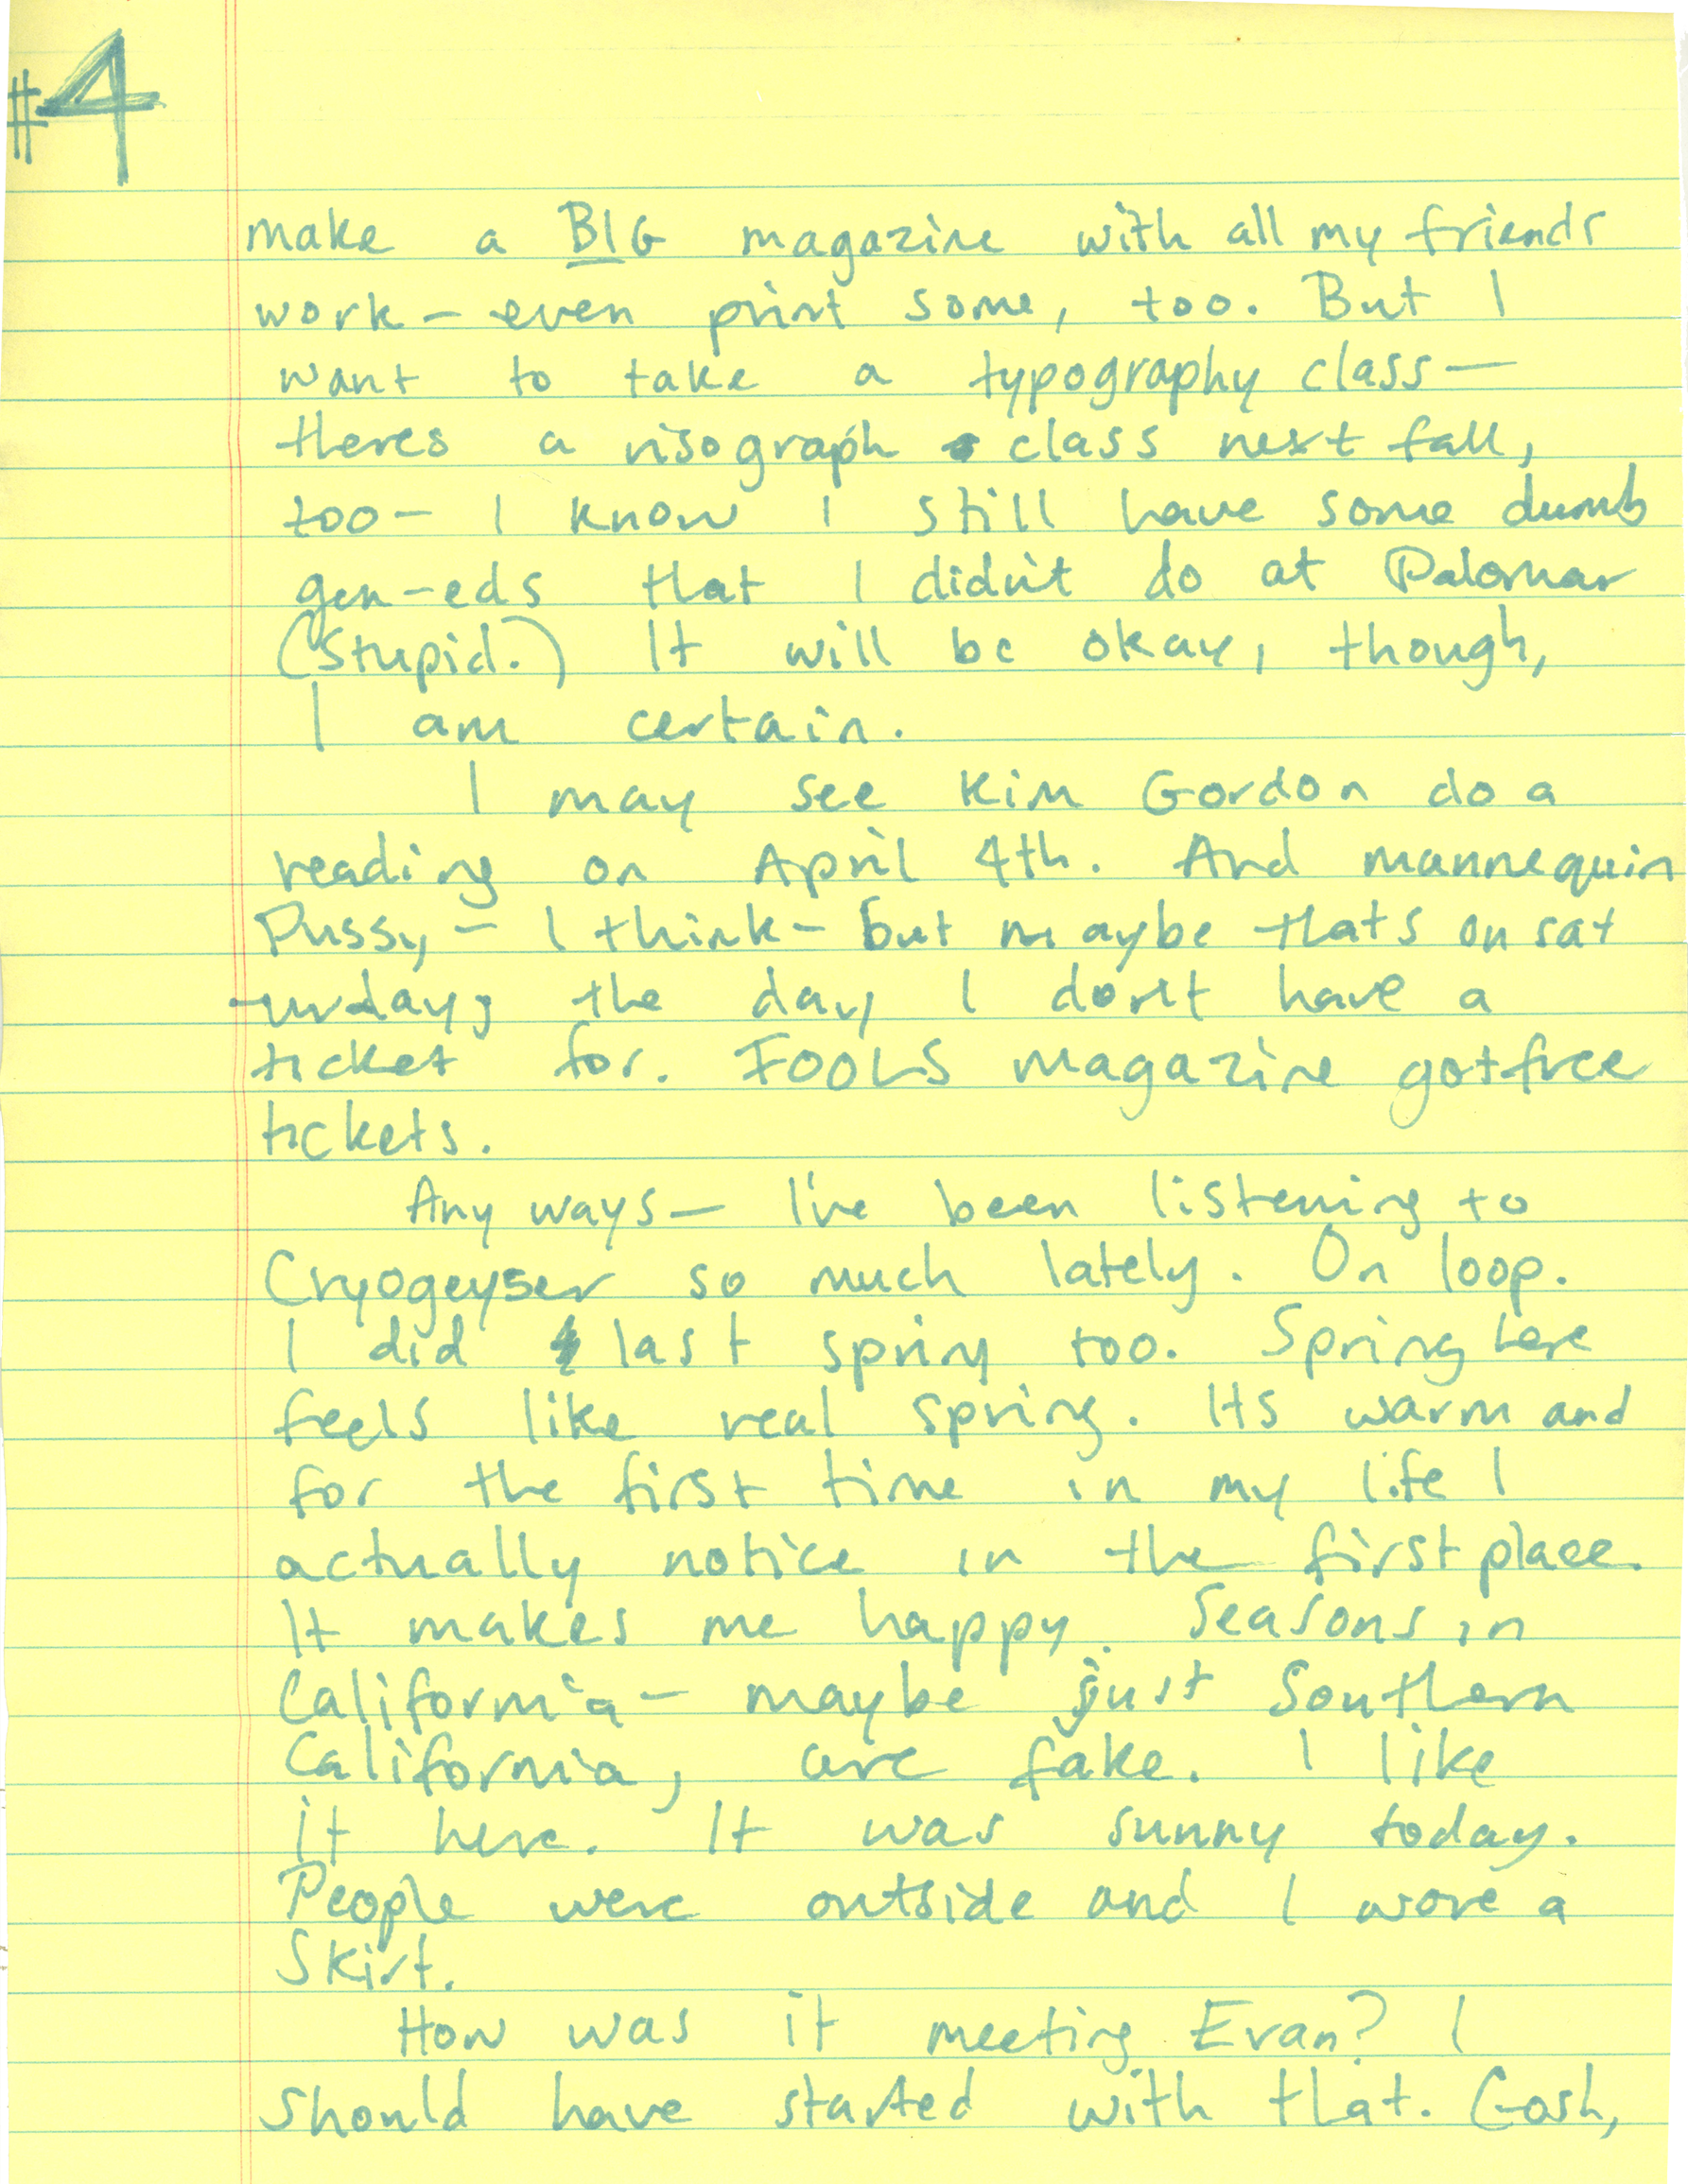 #4
make a BIG magazine with all my friends
work - even print some, too. But I
want to take a typography class —
theres a risograph class next fall,
too - I know I still have some dumb
gen-eds that I didn't do at Palomar
(Stupid.) It will be okay, though,
I am certain.
I may see Kim Gordon do a
reading on April 4th. And mannequin
Pussy - I think - but maybe thats on sat
-urday, the day I don't have a
ticket for. FOOLS magazine got free
tickets.
Any ways — I've been listening to
Cryogeyser so much lately. On loop.
I did last spring too. Spring here
feels like real spring. Its warm and
for the first time in my life I
actually notice in the first place.
It makes me happy. Seasons in
California - maybe just Southern
California, are fake. I like
it here. It was sunny today.
People were outside and I wore a
Skirt.
How was it meeting Evan? I
should have started with that. Gosh,